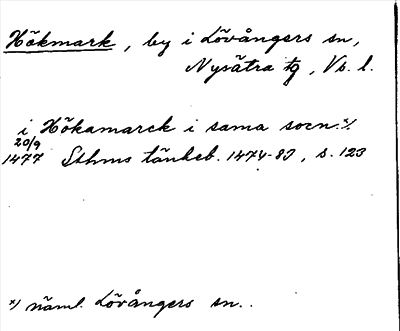 Hökmark, by i Lövångers sn,
Nysätra tg, Vb. l.
i Hökamarck i sama socn.x/
20/9
1477 Sthms tänkeb. 1474-83, s. 123
x/ näml. Lövångers sn..